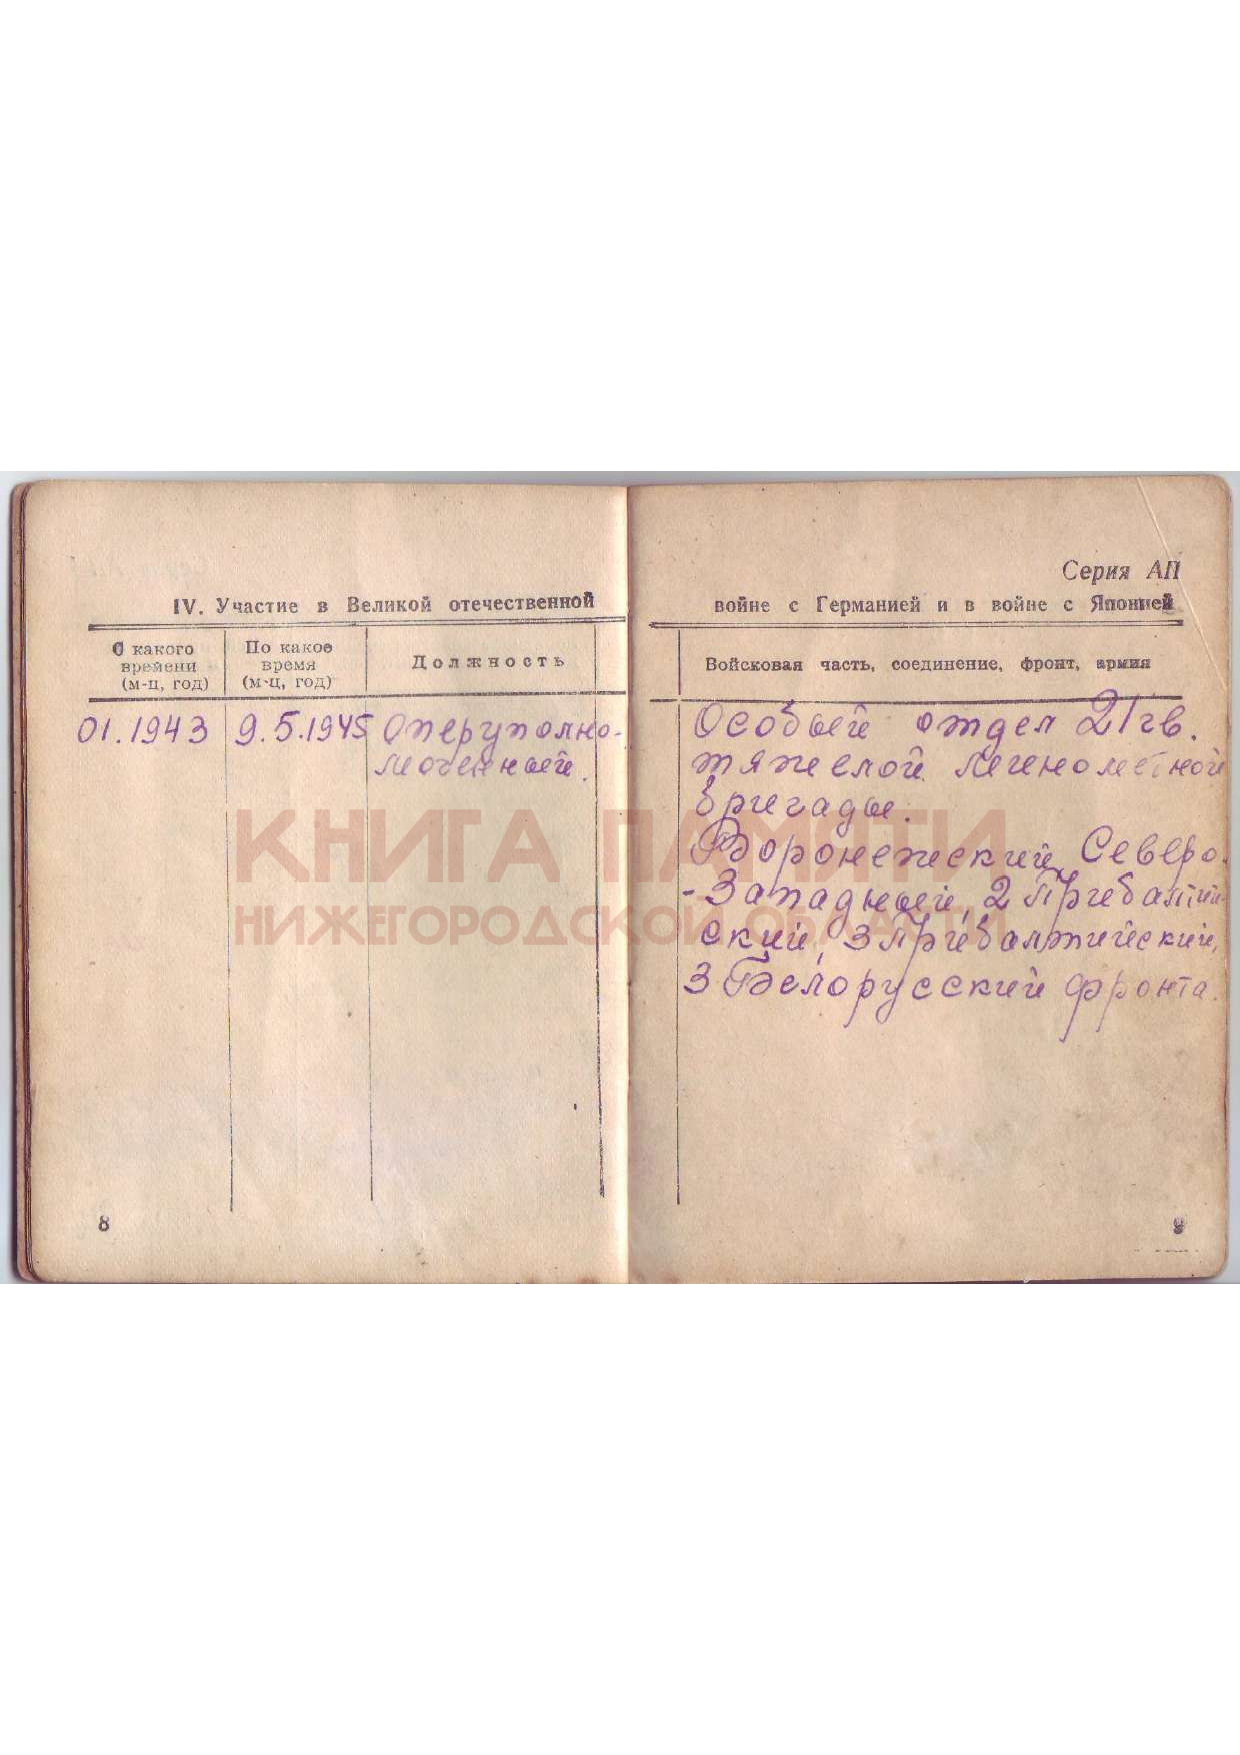 Серия АП
IV. Участие в Великой отечественной войне с Германией и в войне с Японией
С какого времени (м-ц, год)
По какое время (м-ц, год)
Должность
Войсковая часть, соединение, фронт, армия
01.1943
9.5.1945
Оперуполно-
моченный.
Особый отдел 21 гв.
тяжелой минометной
бригады.
Воронежский, Северо-
-Западный, 2 Прибалтий-
ский, 3 Прибалтийский,
3 Белорусский фронта.
КНИГА ПАМЯТИ
НИЖЕГОРОДСКОЙ ОБЛАСТИ
8
9